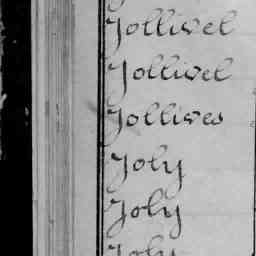 Jollivel
Jollivel
Jollives
Joly
Joly
Joly